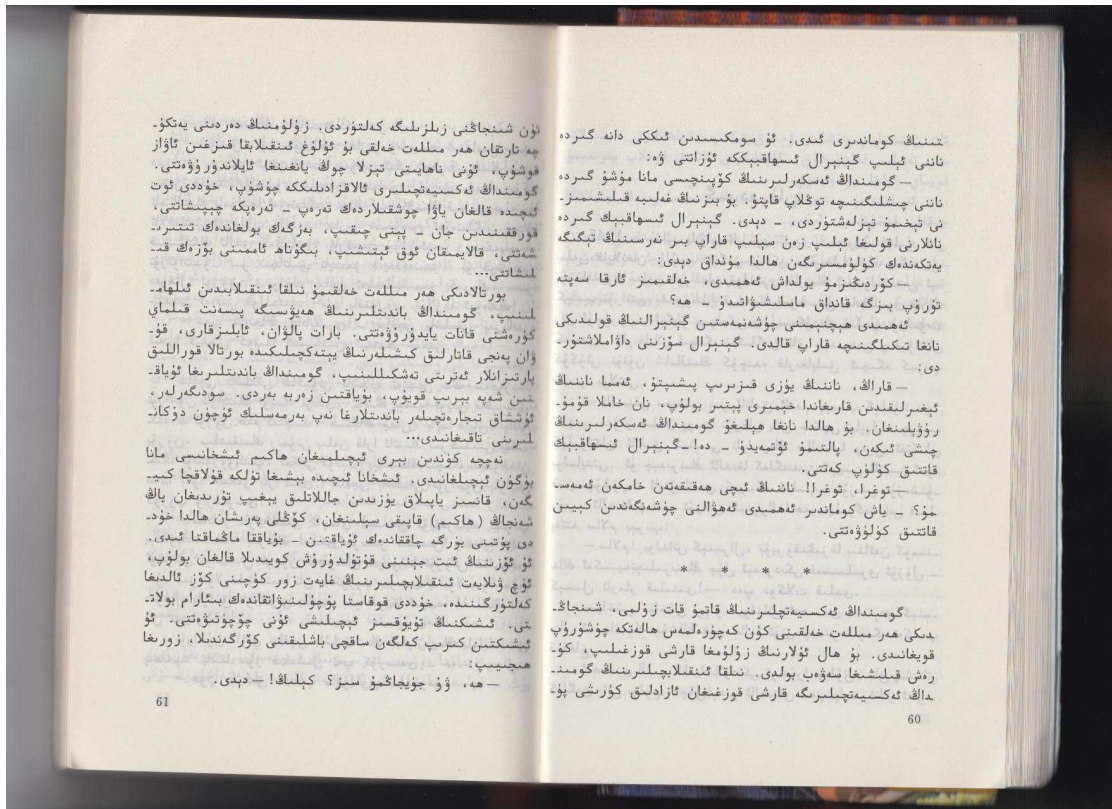 تىنىڭ كوماندىرى ئىدى. ئۇ سومكىسىدىن ئىككى دانە گىردە
ناننى ئېلىپ گېنېرال ئىسھاقبېككە ئۇزاتتى ۋە:
— گومىنداڭ ئەسكەرلىرىنىڭ كۆپىنچىسى مانا مۇشۇ گىردە
ناننى چىشلىگىنىچە توڭلاپ قاپتۇ. بۇ بىزنىڭ غەلىبە قىلىشىمىز-
نى تېخىمۇ تېزلەشتۈردى، - دېدى. گېنېرال ئىسھاقبېك گىردە
نانلارنى قولىغا ئېلىپ زەن سېلىپ قاراپ بىر نەرسىنىڭ تېگىگە
يەتكەندەك كۈلۈمسىرىگەن ھالدا مۇنداق دېدى:
— كۆردىڭىزمۇ يولداش ئەھمىدى، خەلقىمىز ئارقا سەپتە
تۇرۇپ بىزگە قانداق ماسلىشىۋاتىدۇ - ھە؟
ئەھمىدى ھېچنېمىنى چۈشەنمەستىن گېنېرالنىڭ قولىدىكى
نانغا تىكىلگىنىچە قاراپ قالدى. گېنېرال سۆزىنى داۋاملاشتۇر-
دى:
— قاراڭ، ناننىڭ يۈزى قىزىرىپ پىشىپتۇ، ئەمما ناننىڭ
ئېغىرلىقىدىن قارىغاندا خېمىرى پېتىر بولۇپ، نان خاملا قومۇ-
رۇۋېلىنغان. بۇ ھالدا نانغا ھېلىغۇ گومىنداڭ ئەسكەرلىرىنىڭ
چىشى ئىكەن، پالتىمۇ ئۆتمەيدۇ - دە! — گېنېرال ئىسھاقبېك
قاتتىق كۈلۈپ كەتتى.
— توغرا، توغرا! ناننىڭ ئىچى ھەقىقەتەن خامكەن ئەمەس-
مۇ؟ - ياش كوماندىر ئەھمىدى ئەھۋالنى چۈشەنگەندىن كېيىن
قاتتىق كۈلۈۋەتتى.
* * * *
گومىنداڭ ئەكسىيەتچىلىرىنىڭ قاتمۇ قات زۇلمى، شىنجاڭ-
دىكى ھەر مىللەت خەلقىنى كۈن كەچۈرەلمەس ھالەتكە چۈشۈرۈپ
قويغانىدى. بۇ ھال ئۇلارنىڭ زۇلۇمغا قارشى قوزغىلىپ، كۈ-
رەش قىلىشىغا سەۋەب بولدى. نىلقا ئىنقىلابچىلىرىنىڭ گومىن-
داڭ ئەكسىيەتچىلىرىگە قارشى قوزغىغان ئازادلىق كۈرىشى پۈ-
60
تۈن شىنجاڭنى زىلزىلىگە كەلتۈردى. زۇلۇمنىڭ دەردىنى يەتكۈ-
چە تارتقان ھەر مىللەت خەلقى بۇ ئۇلۇغ ئىنقىلابقا قىزغىن ئاۋاز
قوشۇپ، ئۇنى ناھايىتى تېزلا چوڭ يانغىنغا ئايلاندۇرۇۋەتتى.
گومىنداڭ ئەكسىيەتچىلىرى ئالاقزادىلىككە چۈشۈپ، خۇددى ئوت
ئىچىدە قالغان ياۋا چوشقىلاردەك تەرەپ - تەرەپكە چېپىشاتتى،
قورققىنىدىن جان - پېنى چىقىپ، بەزگەك بولغاندەك تىتىرى-
شەتتى، قالايمىقان ئوق ئېتىشىپ، بىگۇناھ ئاممىنى بوزەك قى-
لىشاتتى...
بورتالادىكى ھەر مىللەت خەلقىمۇ نىلقا ئىنقىلابىدىن ئىلھام-
لىنىپ، گومىنداڭ باندىتلىرىنىڭ ھەيۋىسىگە پىسەنت قىلماي
كۈرەشنى قانات يايدۇرۇۋەتتى. بارات پالۋان، ئابلىزقارى، قۇ-
ۋان پەنجى قاتارلىق كىشىلەرنىڭ يېتەكچىلىكىدە بورتالا قوراللىق
پارتىزانلار ئەترىتى تەشكىللىنىپ، گومىنداڭ باندىتلىرىغا ئۇياق-
تىن شەپە بېرىپ قويۇپ، بۇياقتىن زەربە بەردى. سودىگەرلەر،
ئۇششاق تىجارەتچىلەر باندىتلارغا نەپ بەرمەسلىك ئۈچۈن دۇكان-
لىرىنى تاقىغانىدى...
نەچچە كۈندىن بېرى ئېچىلمىغان ھاكىم ئىشخانىسى مانا
بۈگۈن ئېچىلغانىدى. ئىشخانا ئىچىدە بېشىغا تۈلكە قۇلاقچا كىي-
گەن، قانسىز ياپىلاق يۈزىدىن جاللاتلىق يېغىپ تۇرىدىغان ياڭ
شەنجاڭ (ھاكىم) قاپىقى سېلىنغان، كۆڭلى پەرىشان ھالدا خۇد-
دى پۇتىنى بۈرگە چاققاندەك ئۇياقتىن - بۇياققا ماڭماقتا ئىدى.
ئۇ ئۆزىنىڭ ئىت جېنىنى قۇتۇلدۇرۇش كويىدىلا قالغان بولۇپ،
ئۈچ ۋىلايەت ئىنقىلابچىلىرىنىڭ غايەت زور كۈچىنى كۆز ئالدىغا
كەلتۈرگىنىدە، خۇددى قوقاستا پۇچۇلىنىۋاتقاندەك بىئارام بولات-
تى. ئىشىكنىڭ تۇيۇقسىز ئېچىلىشى ئۇنى چۆچۈتىۋەتتى. ئۇ
ئىشىكتىن كىرىپ كەلگەن ساقچى باشلىقىنى كۆرگەندىلا، زورىغا
ھىجىيىپ:
— ھە، ۋۇ جۈيجاڭمۇ سىز؟ كېلىڭ! — دېدى.
61